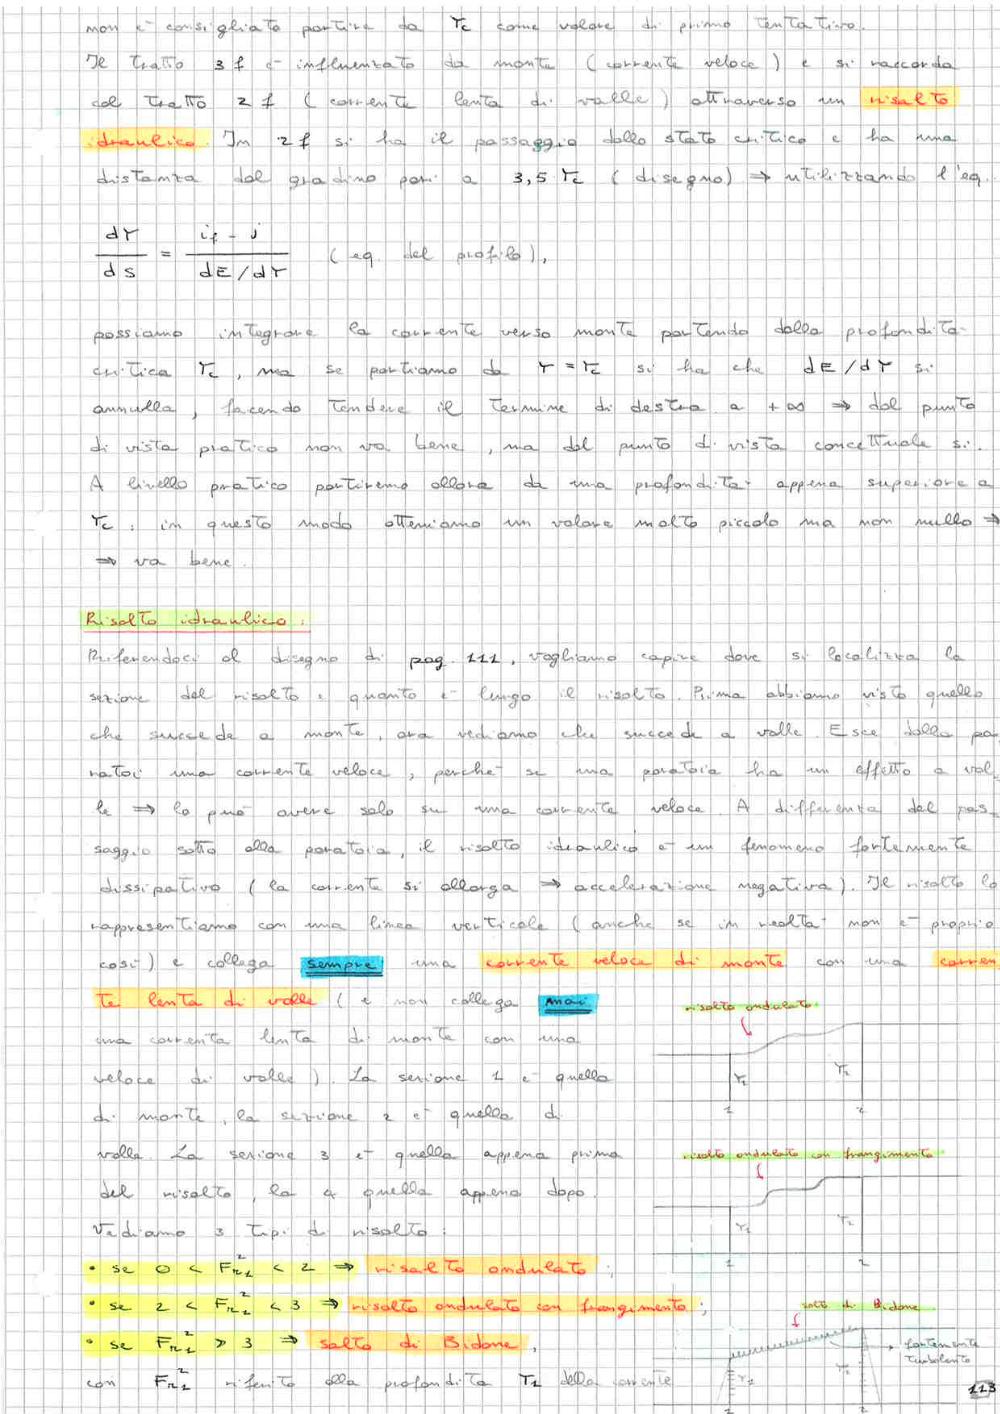 non è consigliato partire da Yc come valore di primo tentativo.
Il tratto 3f è influenzato da monte (corrente veloce) e si raccorda
col tratto 2f (corrente lenta di valle) attraverso un risalto
idraulico. In 2f si ha il passaggio dallo stato critico e ha una
distanza dal gradino pari a 3,5 Yc (disegno) ⇒ utilizzando l'eq.
dY/dS = (if - j)/(dE/dY) (eq. del profilo),
possiamo integrare la corrente verso monte partendo dalla profondità
critica Yc, ma se partiamo da Y = Yc si ha che dE/dY si
annulla, facendo tendere il termine di destra a +∞ ⇒ dal punto
di vista pratico non va bene, ma dal punto di vista concettuale sì.
A livello pratico partiremo allora da una profondità appena superiore a
Yc: in questo modo otteniamo un valore molto piccolo ma non nullo ⇒
⇒ va bene.
Risalto idraulico:
Riferendoci al disegno di pag. 111, vogliamo capire dove si localizza la
sezione del risalto e quanto è lungo il risalto. Prima abbiamo visto quello
che succede a monte, ora vediamo che succede a valle. Esce dalla pa
ratoi una corrente veloce, perché se una paratoia ha un effetto a val_
le ⇒ lo può avere solo su una corrente veloce. A differenza del pas_
saggio sotto alla paratoia, il risalto idraulico è un fenomeno fortemente
dissipativo (la corrente si allarga ⇒ accelerazione negativa). Il risalto lo
rappresentiamo con una linea verticale (anche se in realtà non è proprio
così) e collega sempre una corrente veloce di monte con una corren
te lenta di valle (e non collega mai
una corrente lenta di monte con una
veloce di valle). La sezione 1 è quella
di monte, la sezione 2 è quella di
valle. La sezione 3 è quella appena prima
del risalto, la 4 quella appena dopo.
Vediamo 3 tipi di risalto:
• se 0 < Fr1² < 2 ⇒ risalto ondulato;
• se 2 < Fr1² < 3 ⇒ risalto ondulato con frangimento;
• se Fr1² > 3 ⇒ salto di Bidone,
con Fr1² riferito alla profondità Y1 della corrente
risalto ondulato
Y1 Y2
1 2
risalto ondulato con frangimento
Y1 Y2
1 2
salto di Bidone
fortemente
turbolento
Y1 Y2
1 2
113